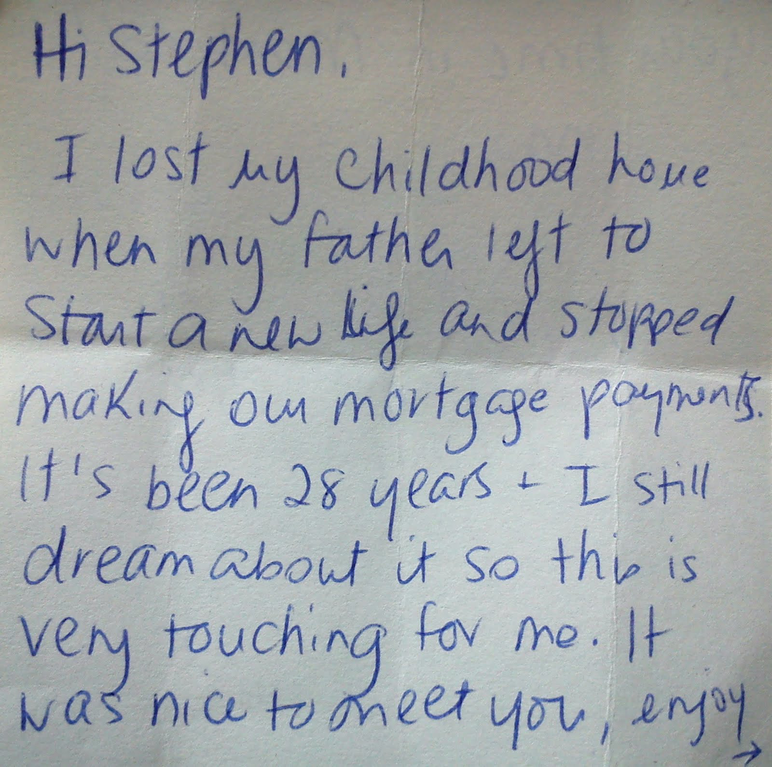 Hi Stephen,
I lost my childhood home
when my father left to
start a new life and stopped
making our mortgage payments.
It's been 28 years + I still
dream about it so this is
very touching for me. It
was nice to meet you, enjoy
→